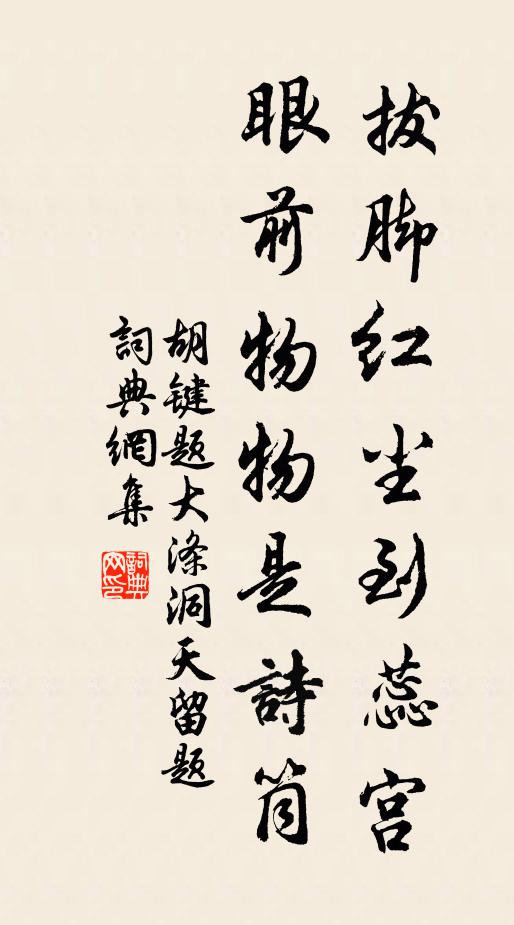 拔脚红尘到蕊宫
眼前物物是詩筒
胡键题大涤洞天留题
詞典網集
詞典网印